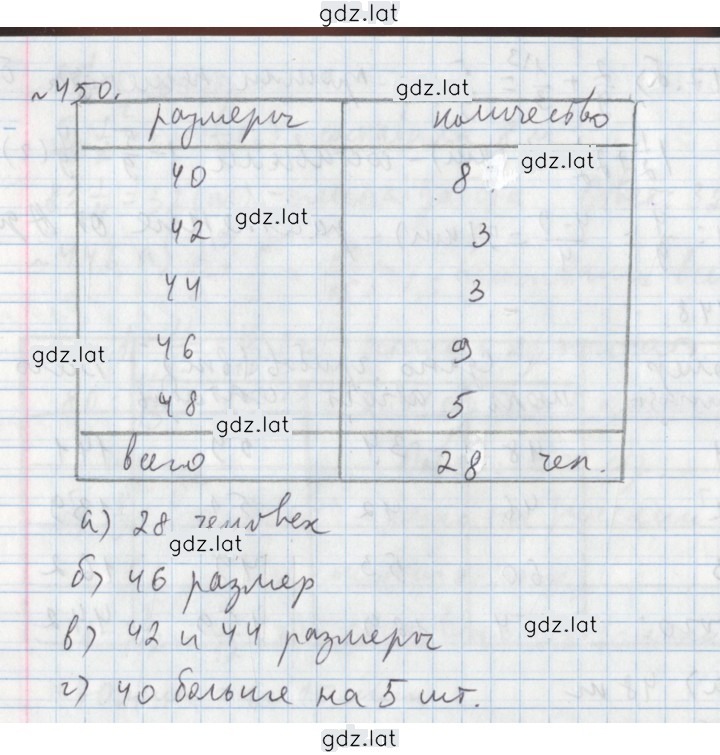 gdz.lat
№450.
gdz.lat
размеры количество
gdz.lat
40 8
gdz.lat
42 3
44 3
gdz.lat
46 9
48 5
gdz.lat
всего 28 чел.
а) 28 человек
gdz.lat
б) 46 размер
gdz.lat
в) 42 и 44 размеры
г) 40 больше на 5 шт.
gdz.lat